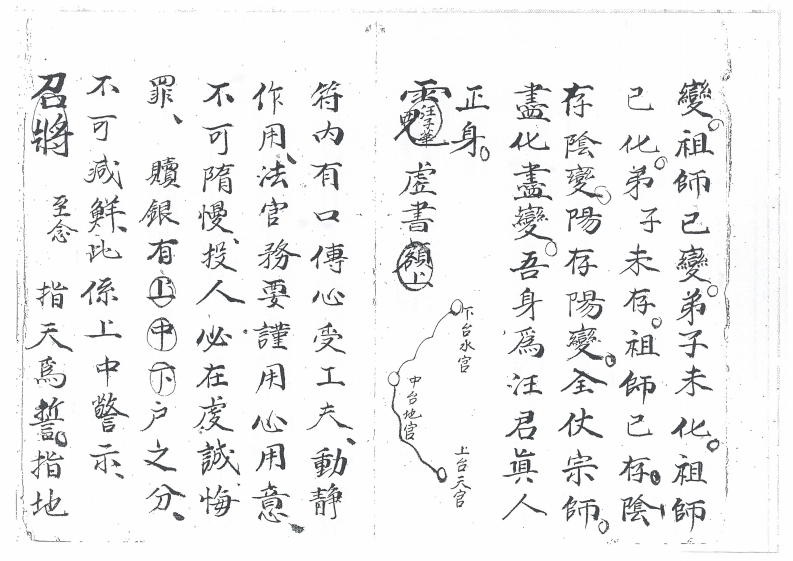 變。祖師已變。弟子未化。祖師
已化。弟子未存。祖師已存。陰
存陰變。陽存陽變。全仗宗師。
盡化盡變。吾身爲汪君眞人
正身。
汪子華
虛書
額上
下台水官
中台地官
上台天官
符內有口傳心受工夫、動靜
作用、法官務要謹用心用意、
不可隋慢、投人必在虔誠悔
罪、贖銀有上中下户之分、
不可減鮮、此係上中警示、
召將 至念 指天爲誓。指地